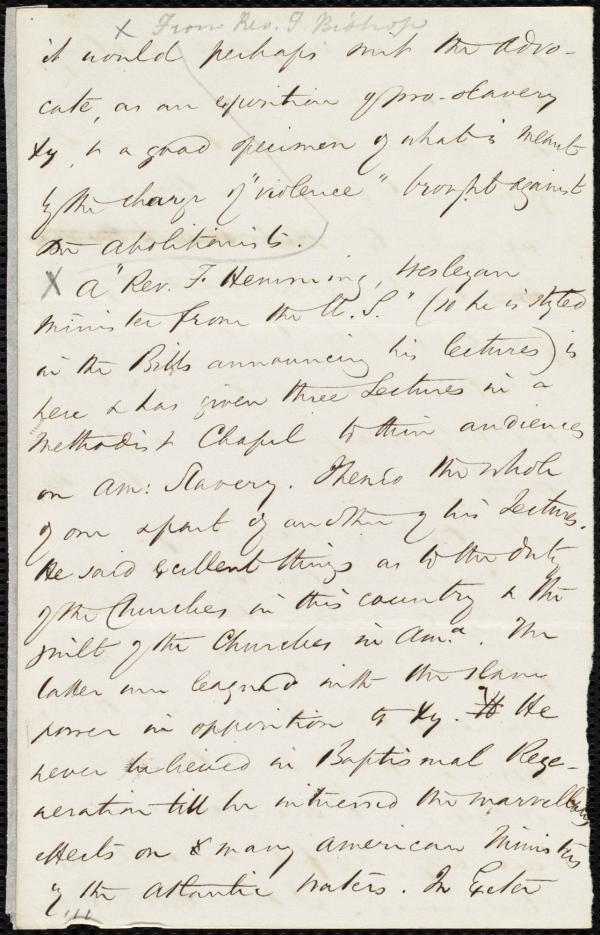 X From Rev. F Bishop
it would perhaps suit the Advo-
cate, as an exposition of pro-slavery
Xy, & a good specimen of what is meant
by the charge of "violence" brought against
abolitionists.
X A "Rev. F. Hemming, Wesleyan
minister from the U. S." (so he is styled
in the Bills announcing his lectures) is
here & has given three Lectures in a
Methodist Chapel to thin audiences
on Am: Slavery. I heard the whole
of one & part of another of his Lectures.
He said excellent things as to the duty
of the Churches in this country & the
guilt of the Churches in Ama. The
latter are leagued with the slave
power in opposition to Xy. He
never believed in Baptismal Rege-
neration till he witnessed the marvellous
effects on many American Ministers
of the Atlantic waters. In Exeter